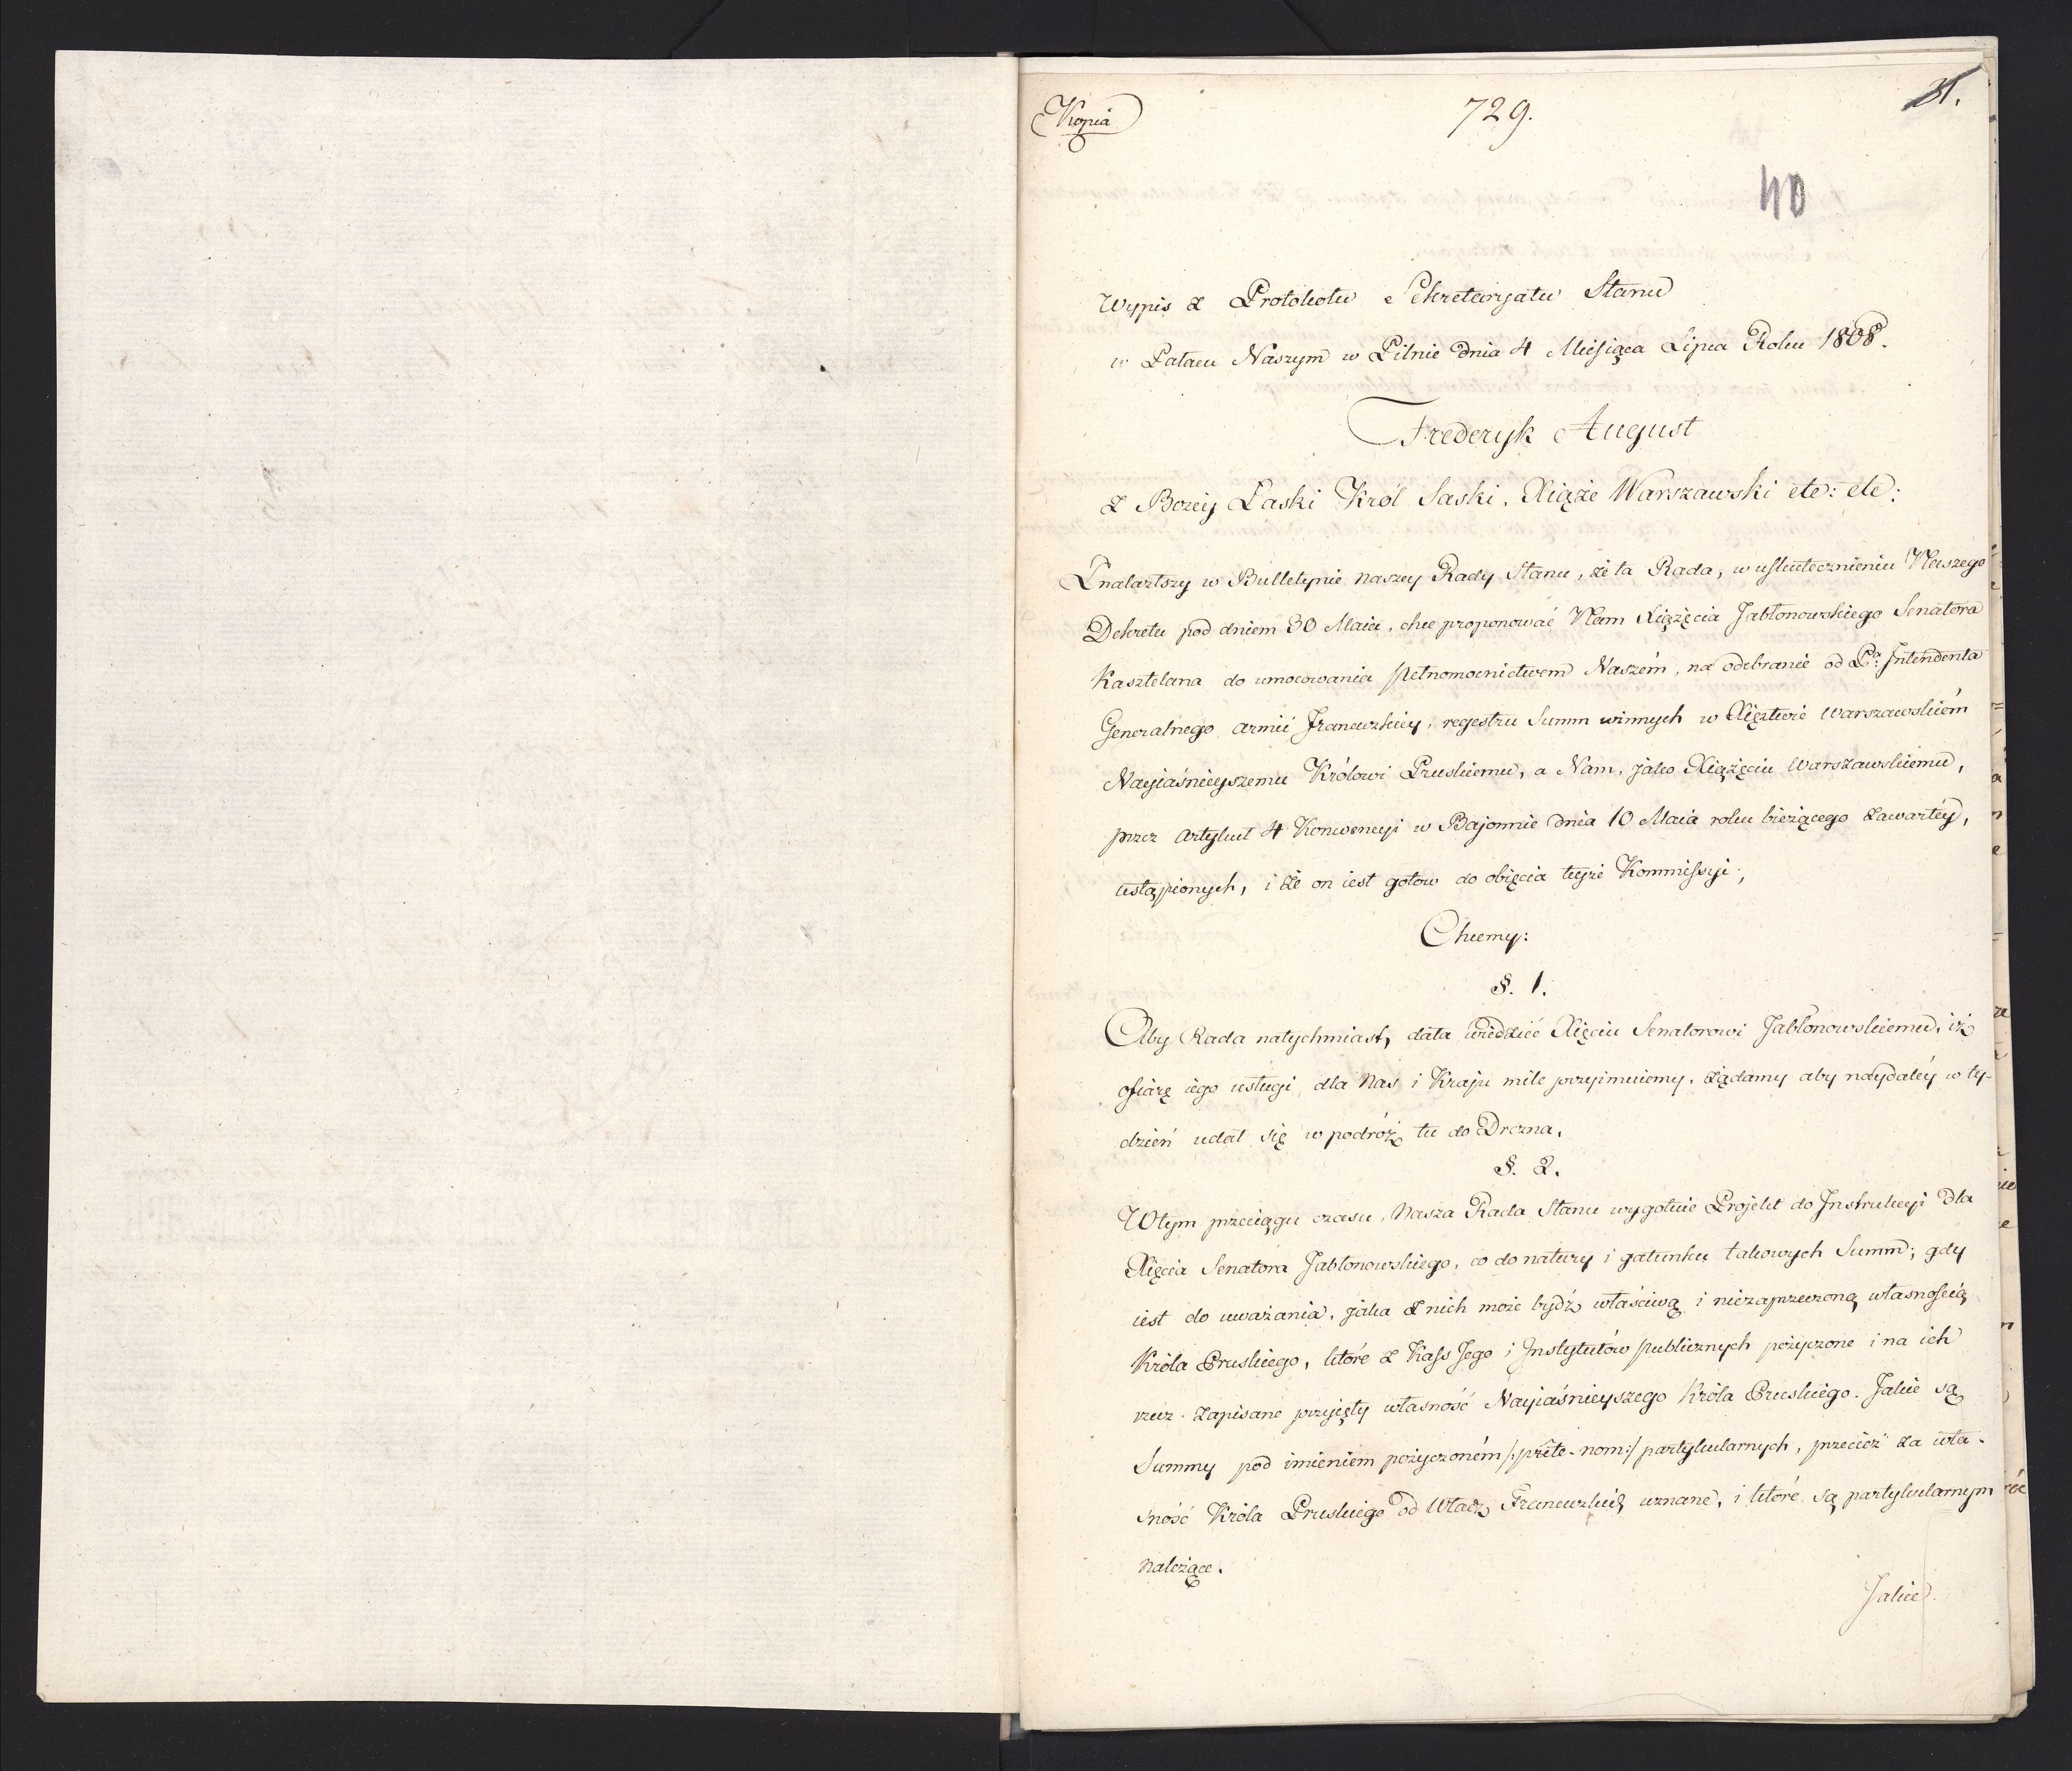 Kopia
729.
31.
40
Wypis z Protokołu Sekretaryatu Stanu
w Pałacu Naszym w Pilnie dnia 4 Miesiąca Lipca Roku 1808.
Frederyk August
z Bozéy Łaski Król Saski, Xiąże Warszawski etc: etc:
Znalazłszy w Bulletynie naszey Rady Stanu, że ta Rada, w uskutecznieniu Naszego
Dekretu pod dniem 30 Maia, chce proponować Nam Xiążęcia Jabłonowskiego Senatora
Kasztelana do umocowania pełnomocnictwem Naszém, na odebranie od Pa: Intendenta
Generalnego armii Francuzkiey, regestru Summ winnych w Xięztwie Warszawskiém
Nayiaśnieyszemu Królowi Pruskiemu, a Nam, jako Xiążęciu Warszawskiemu,
przez artykuł 4 Konwencyi w Bajonnie dnia 10 Maia roku bieżącego zawartéy,
ustąpionych, i że on iest gotow do obięcia teyże Kommissyi;
Chcemy:
§. 1.
Aby Rada natychmiast, dała wiedzieć Xięciu Senatorowi Jabłonowskiemu, iż
ofiarę iego usługi dla Nas i Kraju mile przyimuiemy, żądamy aby naydaléy w ty-
dzień udał się w podróż tu do Drezna.
§. 2.
W tym przeciągu czasu, Nasza Rada Stanu wygotuie Projekt do Instrukcyi dla
Xięcia Senatora Jabłonowskiego, co do natury i gatunku takowych Summ; gdy
iest do uważania, jaka z nich może bydź właściwą i niezaprzeczoną własnością
Króla Pruskiego, które z Kass Jego i Instytutów publicznych pożyczone i na ich
rzecz zapisane przyięły własność Nayiaśnieyszego Króla Pruskiego. Jakie są
Summy pod imieniem pożyczoném /:prête-nom:/ partykularnych, przecież za wła-
sność Króla Pruskiego od Władz Francuzkich uznane, i które są partykularnym
należące.
Jakie